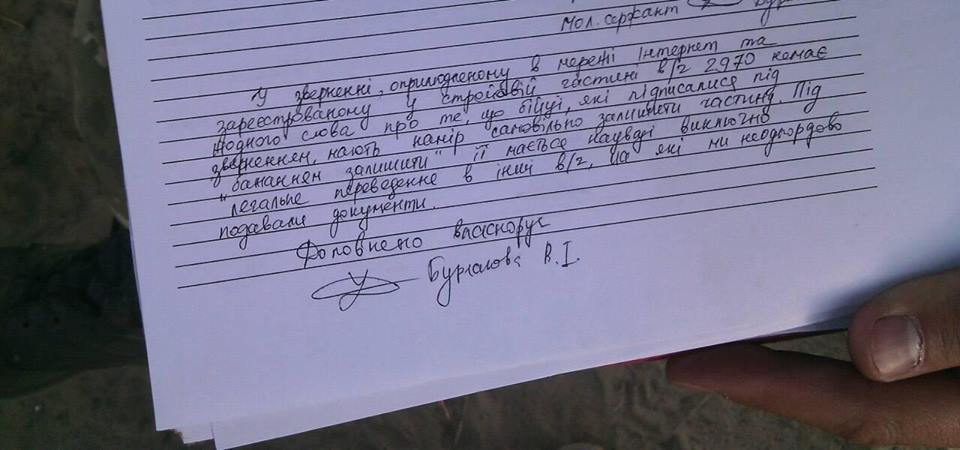 мол. сержант
У зверненні, оприлюдненому в мережі Інтернет та
зареєстрованому у стройовій частині в/г 2970 немає
жодного слова про те, що бійці, які підписалися під
зверненням, мають намір самовільно залишити частину. Під
"бажанням залишити" її мається наувазі виключно
легальне переведення в інші в/г, на які ми неодноразово
подавали документи.
Доповнено власноруч
В.І.